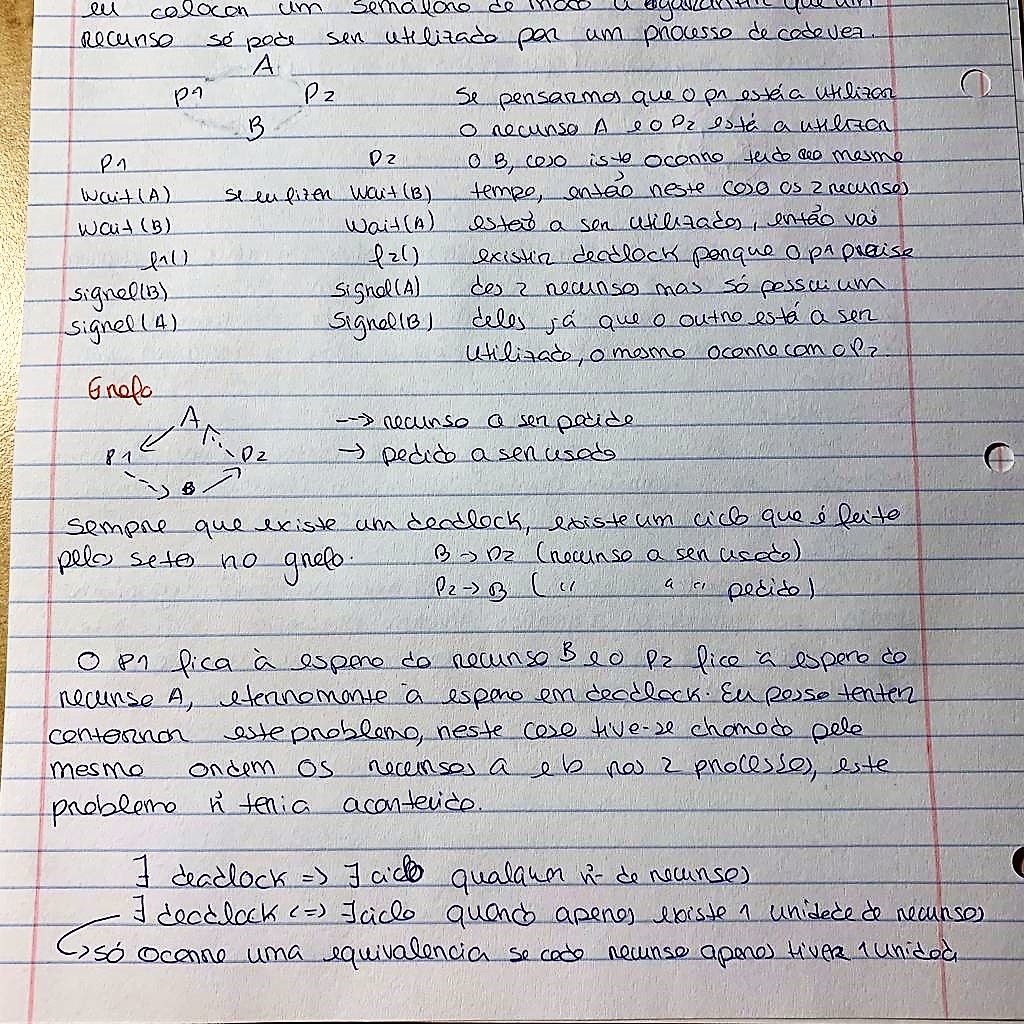 eu colocar um semáforo de modo a garantir que um
recurso só pode ser utilizado por um processo de cada vez.
A
P1 P2
B
Se pensarmos que o p1 está a utilizar
o recurso A e o P2 está a utilizar
P1 P2 o B, caso isto ocorra tudo ao mesmo
Wait(A) se eu fizer Wait(B) tempo, então neste caso os 2 recursos
Wait(B) Wait(A) estão a ser utilizados, então vai
f1() f2() existir deadlock porque o p1 precisa
signal(B) signal(A) dos 2 recursos mas só possui um
signal(A) signal(B) deles já que o outro está a ser
utilizado, o mesmo ocorre com o P2.
Grafo
A --> recurso a ser pedido
P1 P2 → pedido a ser usado
B
Sempre que existe um deadlock, existe um ciclo que é feito
pelas setas no grafo. B → P2 (recurso a ser usado)
P2 → B ( " " " pedido)
O P1 fica à espera do recurso B e o P2 fica à espera do
recurso A, eternamente à espera em deadlock. Eu posso tentar
contornar este problema, neste caso tive-se chamado pela
mesma ordem os recursos a e b nos 2 processos, este
problema ñ teria acontecido.
∃ deadlock => ∃ ciclo qualquer nº de recursos
∃ deadlock <=> ∃ ciclo quando apenas existe 1 unidade de recursos
↳ só ocorre uma equivalencia se cada recurso apenas tiver 1 unidad